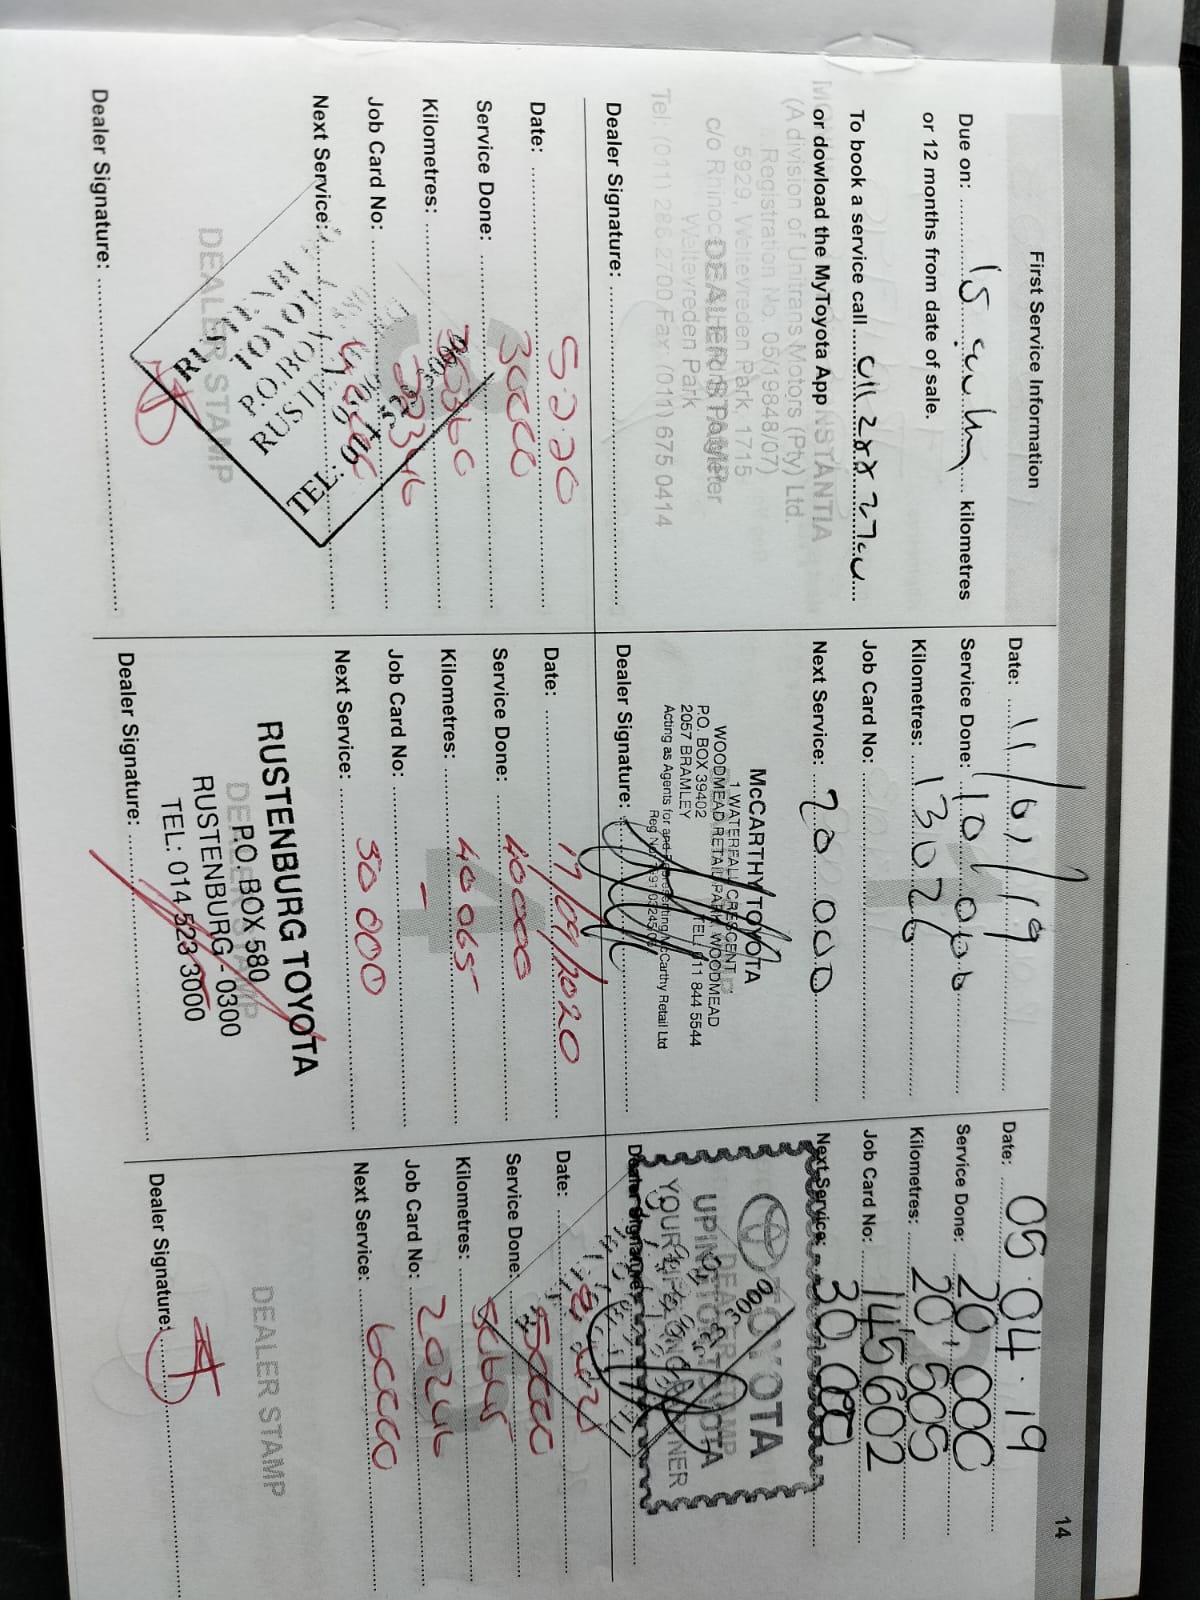 14
First Service Information
Due on: 15 kilometres
or 12 months from date of sale.
To book a service call 011 288 2700
or dowload the MyToyota App
NSTANTIA
(A division of Unitrans Motors (Pty) Ltd.
Registration No. 05/19848/07)
5929, Weltevreden Park, 1715
DEALER STAMP
c/o Rhinoc
Weltevreden Park
Tel: (011) 286 2700 Fax: (011) 675 0414
Dealer Signature:
Date: 11/01/19
Service Done: 10 000
Kilometres: 13026
Job Card No:
Next Service: 20 000
McCARTHY TOYOTA
1 WATERFALL CRESCENT
WOODMEAD RETAIL PARK, WOODMEAD
P.O. BOX 39402 TEL: 011 844 5544
2057 BRAMLEY
Acting as Agents for and Representing McCarthy Retail Ltd
Dealer Signature:
Date: 05.04.19
Service Done: 20,000
Kilometres: 20,505
Job Card No: 145602
Next Service: 30,000
TOYOTA
UPINGTON TOYOTA
Dealer Signature:
Date:
Service Done: 30000
Kilometres:
Job Card No:
Next Service:
RUSTENBURG
TOYOTA
P.O. BOX
TEL: 014 523 3000
DEALER STAMP
Dealer Signature:
Date: 17/09/2020
Service Done: 40000
Kilometres: 40 065
Job Card No: –
Next Service: 50 000
RUSTENBURG TOYOTA
P.O. BOX 580
RUSTENBURG - 0300
TEL: 014 523 3000
Dealer Signature:
Date:
Service Done: 50000
Kilometres:
Job Card No: 20246
Next Service: 60000
DEALER STAMP
Dealer Signature: